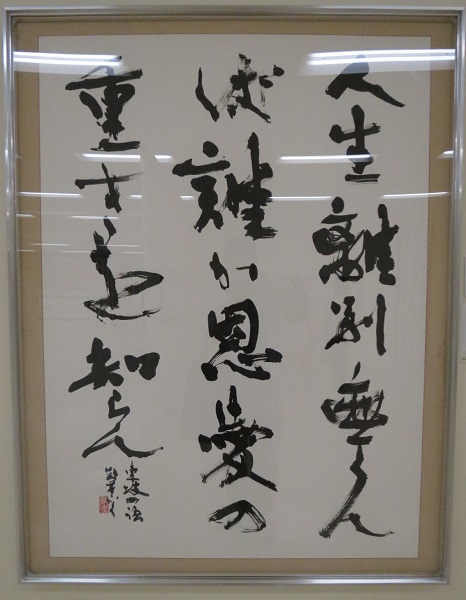 人生離別無くん
ば誰か恩愛の
重きを知らん
東坡の詩